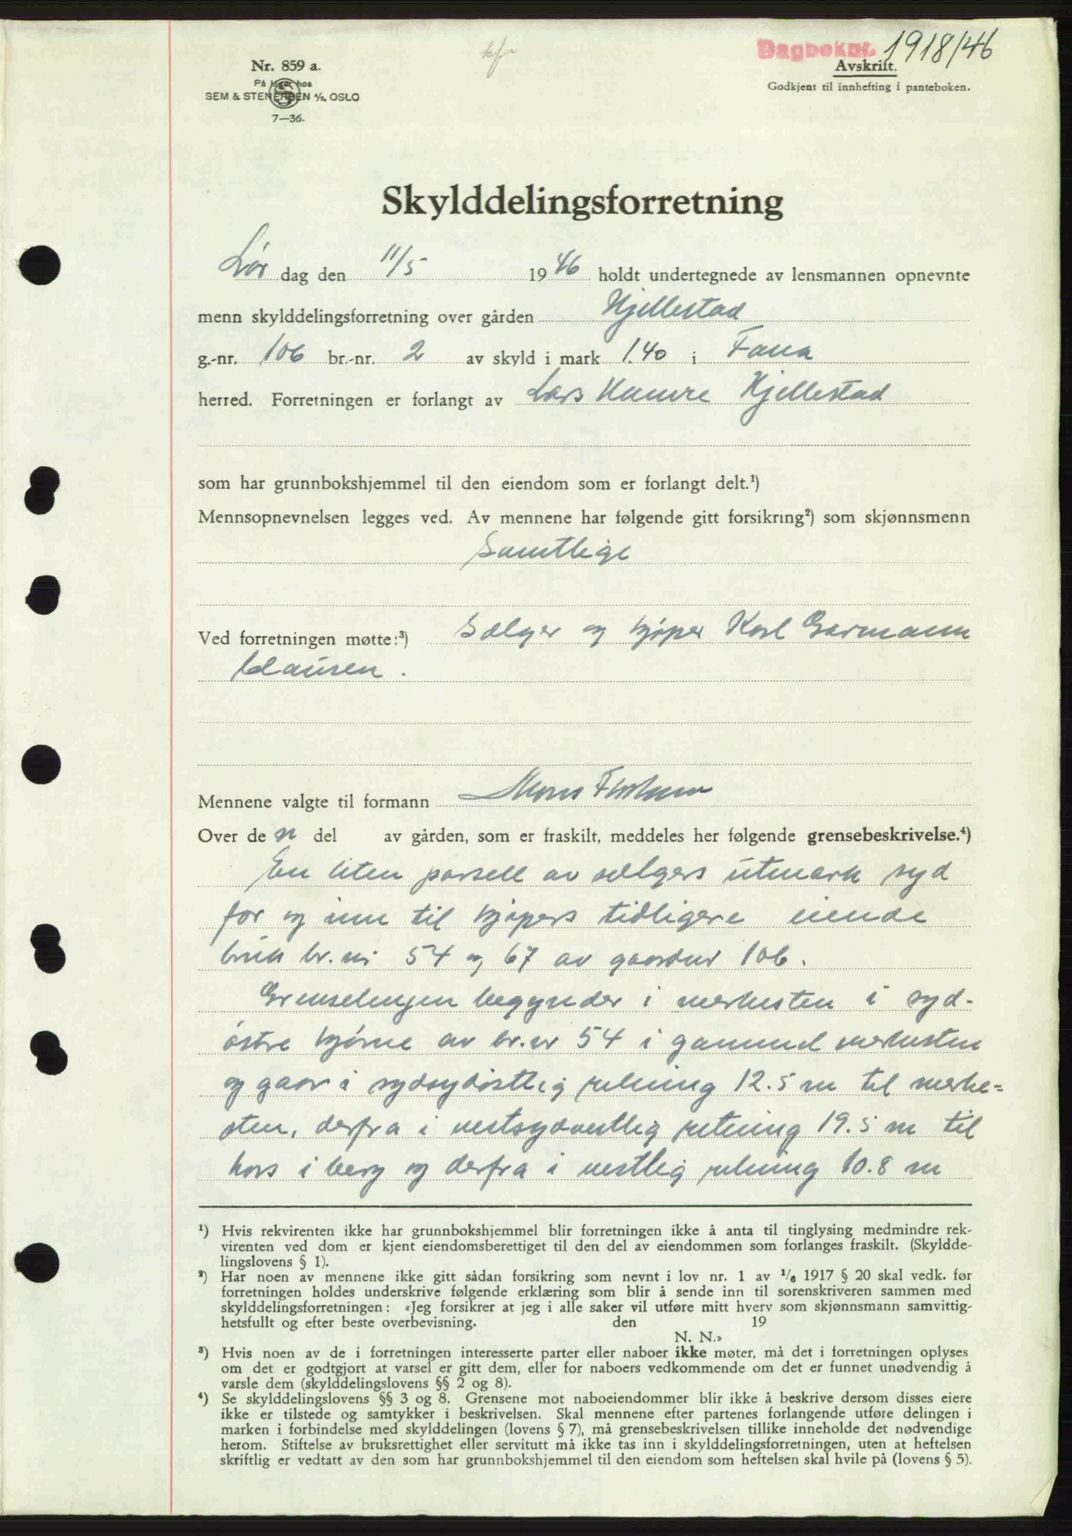 kfr
Dagboknr. 1918/46
Nr. 859 a.
Avskrift.
På lager hos
Godkjent til innhefting i panteboken.
SEM & STENERSEN A/S, OSLO
7—36.
Skylddelingsforretning
Lør dag den 11/5 1946 holdt undertegnede av lensmannen opnevnte
menn skylddelingsforretning over gården Hjellestad
g.-nr. 106 br.-nr. 2 av skyld i mark 1.40 i Fana
herred. Forretningen er forlangt av Lars Hamre Hjellestad
som har grunnbokshjemmel til den eiendom som er forlangt delt.¹)
Mennsopnevnelsen legges ved. Av mennene har følgende gitt forsikring²) som skjønnsmenn
Samtlige
Ved forretningen møtte:³) Sælger og kjøper Karl Garmann
Clausen.
Mennene valgte til formann Mons
Over de n del av gården, som er fraskilt, meddeles her følgende grensebeskrivelse.⁴)
En liten parsell av sælgers utmark syd
for og inn til kjøpers tidligere eiende
bruk br.nr 54 og 67 av gaardnr 106.
Grenselinjen begynder i merkesten i syd-
østre hjørne av br.nr 54 i gammel merkesten
og gaar i sydsydøstlig retning 12.5 m til merke=
sten, derfra i vestsydvestlig retning 19.5 m til
kors i berg og derfra i vestlig retning 10.8 m
¹) Hvis rekvirenten ikke har grunnbokshjemmel blir forretningen ikke å anta til tinglysing medmindre rek-
virenten ved dom er kjent eiendomsberettiget til den del av eiendommen som forlanges fraskilt. (Skyldde-
lingslovens § 1).
²) Har noen av mennene ikke gitt sådan forsikring som nevnt i lov nr. 1 av 1/6 1917 § 20 skal vedk. før
forretningen holdes underskrive følgende erklæring som blir å sende inn til sorenskriveren sammen med
skylddelingsforretningen: «Jeg forsikrer at jeg i alle saker vil utføre mitt hverv som skjønnsmann samvittig-
hetsfullt og efter beste overbevisning. den 19
N. N.»
³) Hvis noen av de i forretningen interesserte parter eller naboer ikke møter, må det i forretningen oplyses
om det er godtgjort at varsel er gitt dem, eller for naboers vedkommende om det er funnet unødvendig å
varsle dem (skylddelingslovens §§ 2 og 8).
⁴) Se skylddelingslovens §§ 3 og 8. Grensene mot naboeiendommer blir ikke å beskrive dersom disses eiere
ikke er tilstede og samtykker i beskrivelsen. Skal mennene efter partenes forlangende utføre delingen i
marken i forbindelse med skylddelingen (lovens § 7), må grensebeskrivelsen tillike inneholde det nødvendige
herom. Stiftelse av bruksrettighet eller servitutt må ikke tas inn i skylddelingsforretningen, uten at heftelsen
skriftlig er vedtatt av den som har grunnbokshjemmel til den eiendom som heftelsen skal hvile på (lovens § 5).